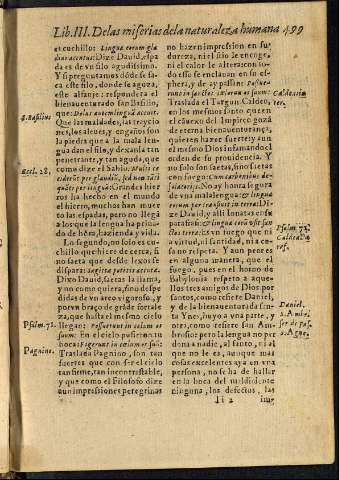 Lib. III. De las miserias de la naturaleza humana 499
es cuchillo: Lingua eorum gla-
dius acutus: Dize Dauid, Apa
da es de vn filo agudissimo.
Y si preguntamos dõde se sa-
ca este filo, donde se agora,
este alfange: respondera el
bienauenturado san Basilio,
que: Dolus autem linguã acuit.
Que las maldades, las trayciones,
los aleues, y engaños son
la piedra que a la mala len-
gua dan el filo, y dexanla tan
penetrante, y tan aguda, que
como dize el Sabio: Multi ce-
ciderũt per gladiũ, sed non tãti
quãti per linguã: Grandes hie-
rros ha hecho en el mundo
el hierro, muchos han muer
to las espadas, pero no llegã
a los que la lengua ha priua-
do de honra, hazienda y vida.
Lo segundo, no solo es cu-
chillo que hiere de cerca, si
no saeta que desde lexos se
dispara: Sagitta potentis acuta.
Dize Dauid, saetas la llama,
y no como quiera, sino despe
didas de vn arco vigoroso, y
por vn braço de grãde fortale
za, que hasta el mesmo cielo
llegan: Posuerunt in cælum os
suum. En el cielo pusieron su
boca: Figerunt in cælum os suũ:
Traslada Pagnino, son tan
fuertes que con ser el cielo
tan firme, tan incontrastable,
y que como el Filosofo dize
aun impressiones peregrinas
S. Basilio.
Eccl. 28.
Psalm. 72.
Pagnino.
no hazen impression en su
dureza, ni el frio le encoge,
ni el calor le altera: con to-
do esso se enclauan en su es-
phera, y de ay passan: Posue-
runt in sanctos cælorum os suum:
Traslada el Targun Caldeo,
en los mesmos santos que en
el cielo del Impireo goza
de eterna bienauenturança,
quieren hazer suerte, y aun
el mesmo Dios infamando el
orden de su prouidencia. Y
no son solas saetas, sino sae-
tas con fuego: Cum carbonibus de-
solatorijs. No ay honra segura
de vna mala lengua: & lingua
eorum transiuit in terra: Di-
ze Dauid, y alli
Es vn fuego que ni
a virtud, ni santidad, ni a ce-
sano respeta. Y aun parece
en alguna manera, que
el fuego, pues en el horno de
Babylonia respeto a aque-
llos tantos amigos de Dios por
santos, como refiere Daniel,
y de la bienauenturada san-
ta Ynes, huyo a vna parte, y
otro, como refiere san Am-
brosio: pero la lengua no per
dona a nadie, al santo, ni al
que no le es, aunque mas
excelencias aya en vna
persona, no se ha de hallar
en la boca del maldiciente
ninguna, los defectos, las
Ii 2
Psalm. 72.
Daniel.
S. Agne.